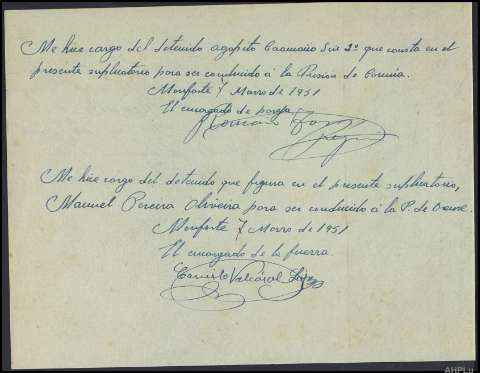 Me hice cargo del detenido agapito Caamaño que consta en el
presente suplicatorio para ser conducido á la Prision de Coruña.
Monforte 7 Marzo de 1951
El encargado de pareja
Me hice cargo del detenido que figura en el presente suplicatorio,
Manuel Pereira Oliveira para ser conducido á la P. de Orense.
Monforte 7 Marzo de 1951
El encargado de la
Camilo Valcárcel
AHPLu